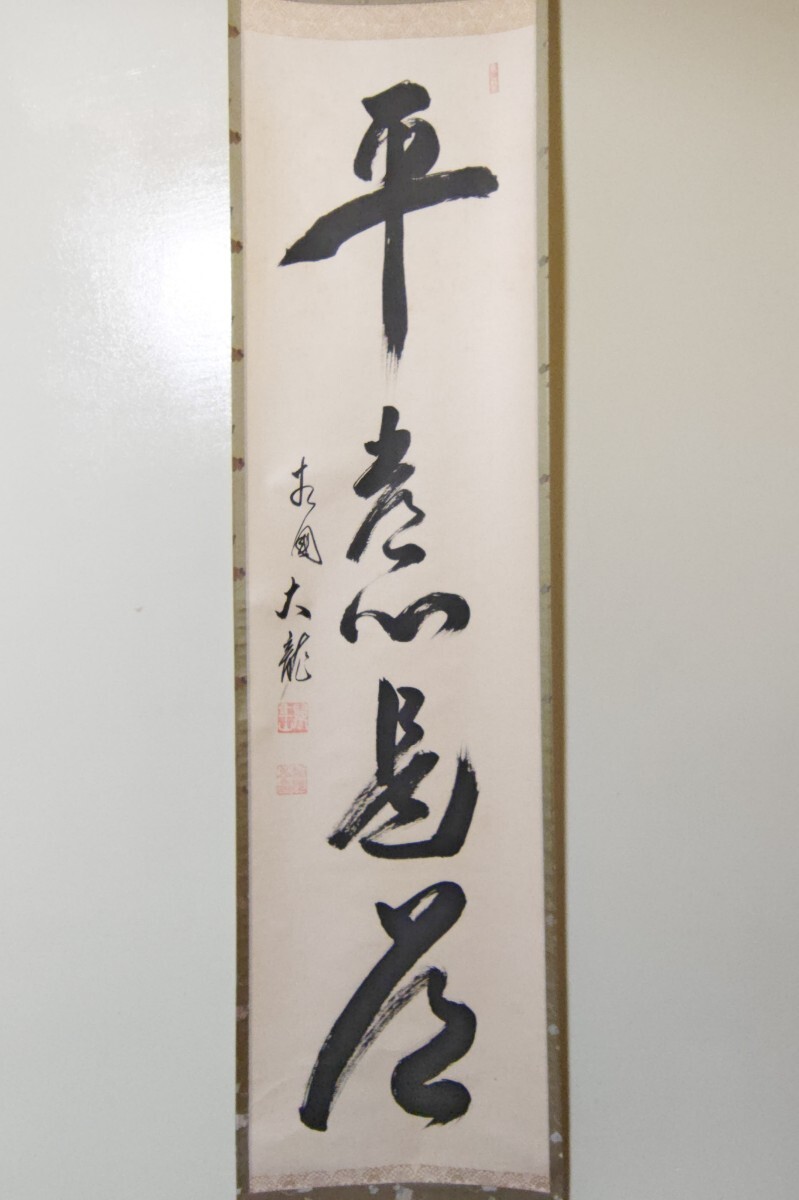 平常心是道
相國大龍